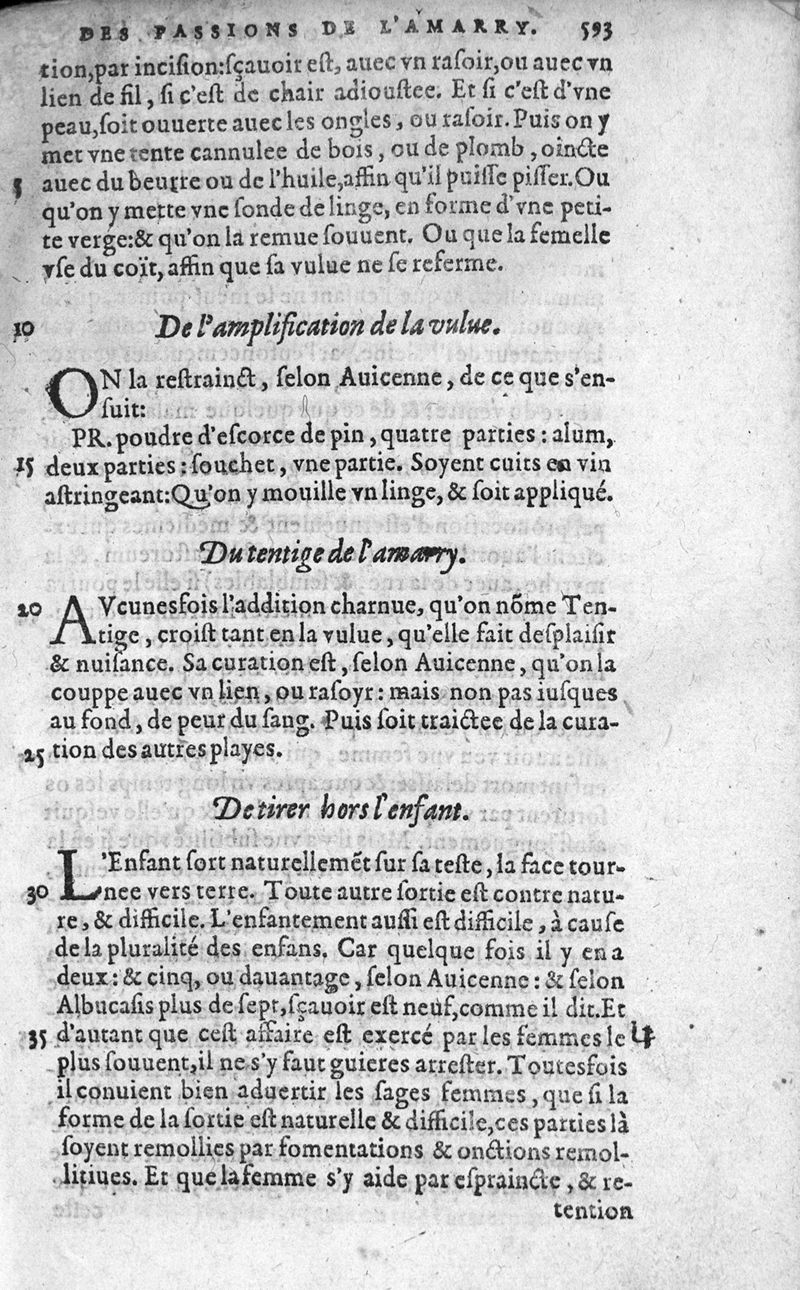 DES PASSIONS DE L'AMARRY. 593
tion,par incision:sçauoir est, auec vn rasoir,ou auec vn
lien de fil, si c'est de chair adioustee. Et si c'est d'vne
peau,soit ouuerte auec les ongles, ou rasoir. Puis on y
met vne tente cannulee de bois, ou de plomb, oincte
5 auec du beurre ou de l'huile,affin qu'il puisse pisser.Ou
qu'on y mette vne sonde de linge, en forme d'vne peti-
te verge:& qu'on la remue souuent. Ou que la femelle
vse du coït, affin que sa vulue ne se referme.
10 De l'amplification de la vulue.
ON la restrainct, selon Auicenne, de ce que s'en-
suit:
PR. poudre d'escorce de pin, quatre parties: alum,
15 deux parties: souchet, vne partie. Soyent cuits en vin
astringeant:Qu'on y mouille vn linge, & soit appliqué.
Du tentige de l'amarry.
20 AVcunesfois l'addition charnue, qu'on nõme Ten-
tige, croist tant en la vulue, qu'elle fait desplaisir
& nuisance. Sa curation est, selon Auicenne, qu'on la
couppe auec vn lien, ou rasoyr: mais non pas iusques
au fond, de peur du sang. Puis soit traictee de la cura-
25 tion des autres playes.
De tirer hors l'enfant.
L'Enfant sort naturellemẽt sur sa teste, la face tour-
30 nee vers terre. Toute autre sortie est contre natu-
re, & difficile. L'enfantement aussi est difficile, à cause
de la pluralité des enfans. Car quelque fois il y en a
deux: & cinq, ou dauantage, selon Auicenne: & selon
Albucasis plus de sept,sçauoir est neuf,comme il dit.Et
35 d'autant que cest affaire est exercé par les femmes le
plus souuent,il ne s'y faut guieres arrester. Toutesfois
il conuient bien aduertir les sages femmes, que si la
forme de la sortie est naturelle & difficile,ces parties là
soyent remollies par fomentations & onctions remol-
litiues. Et que la femme s'y aide par espraincte, & re-
tention